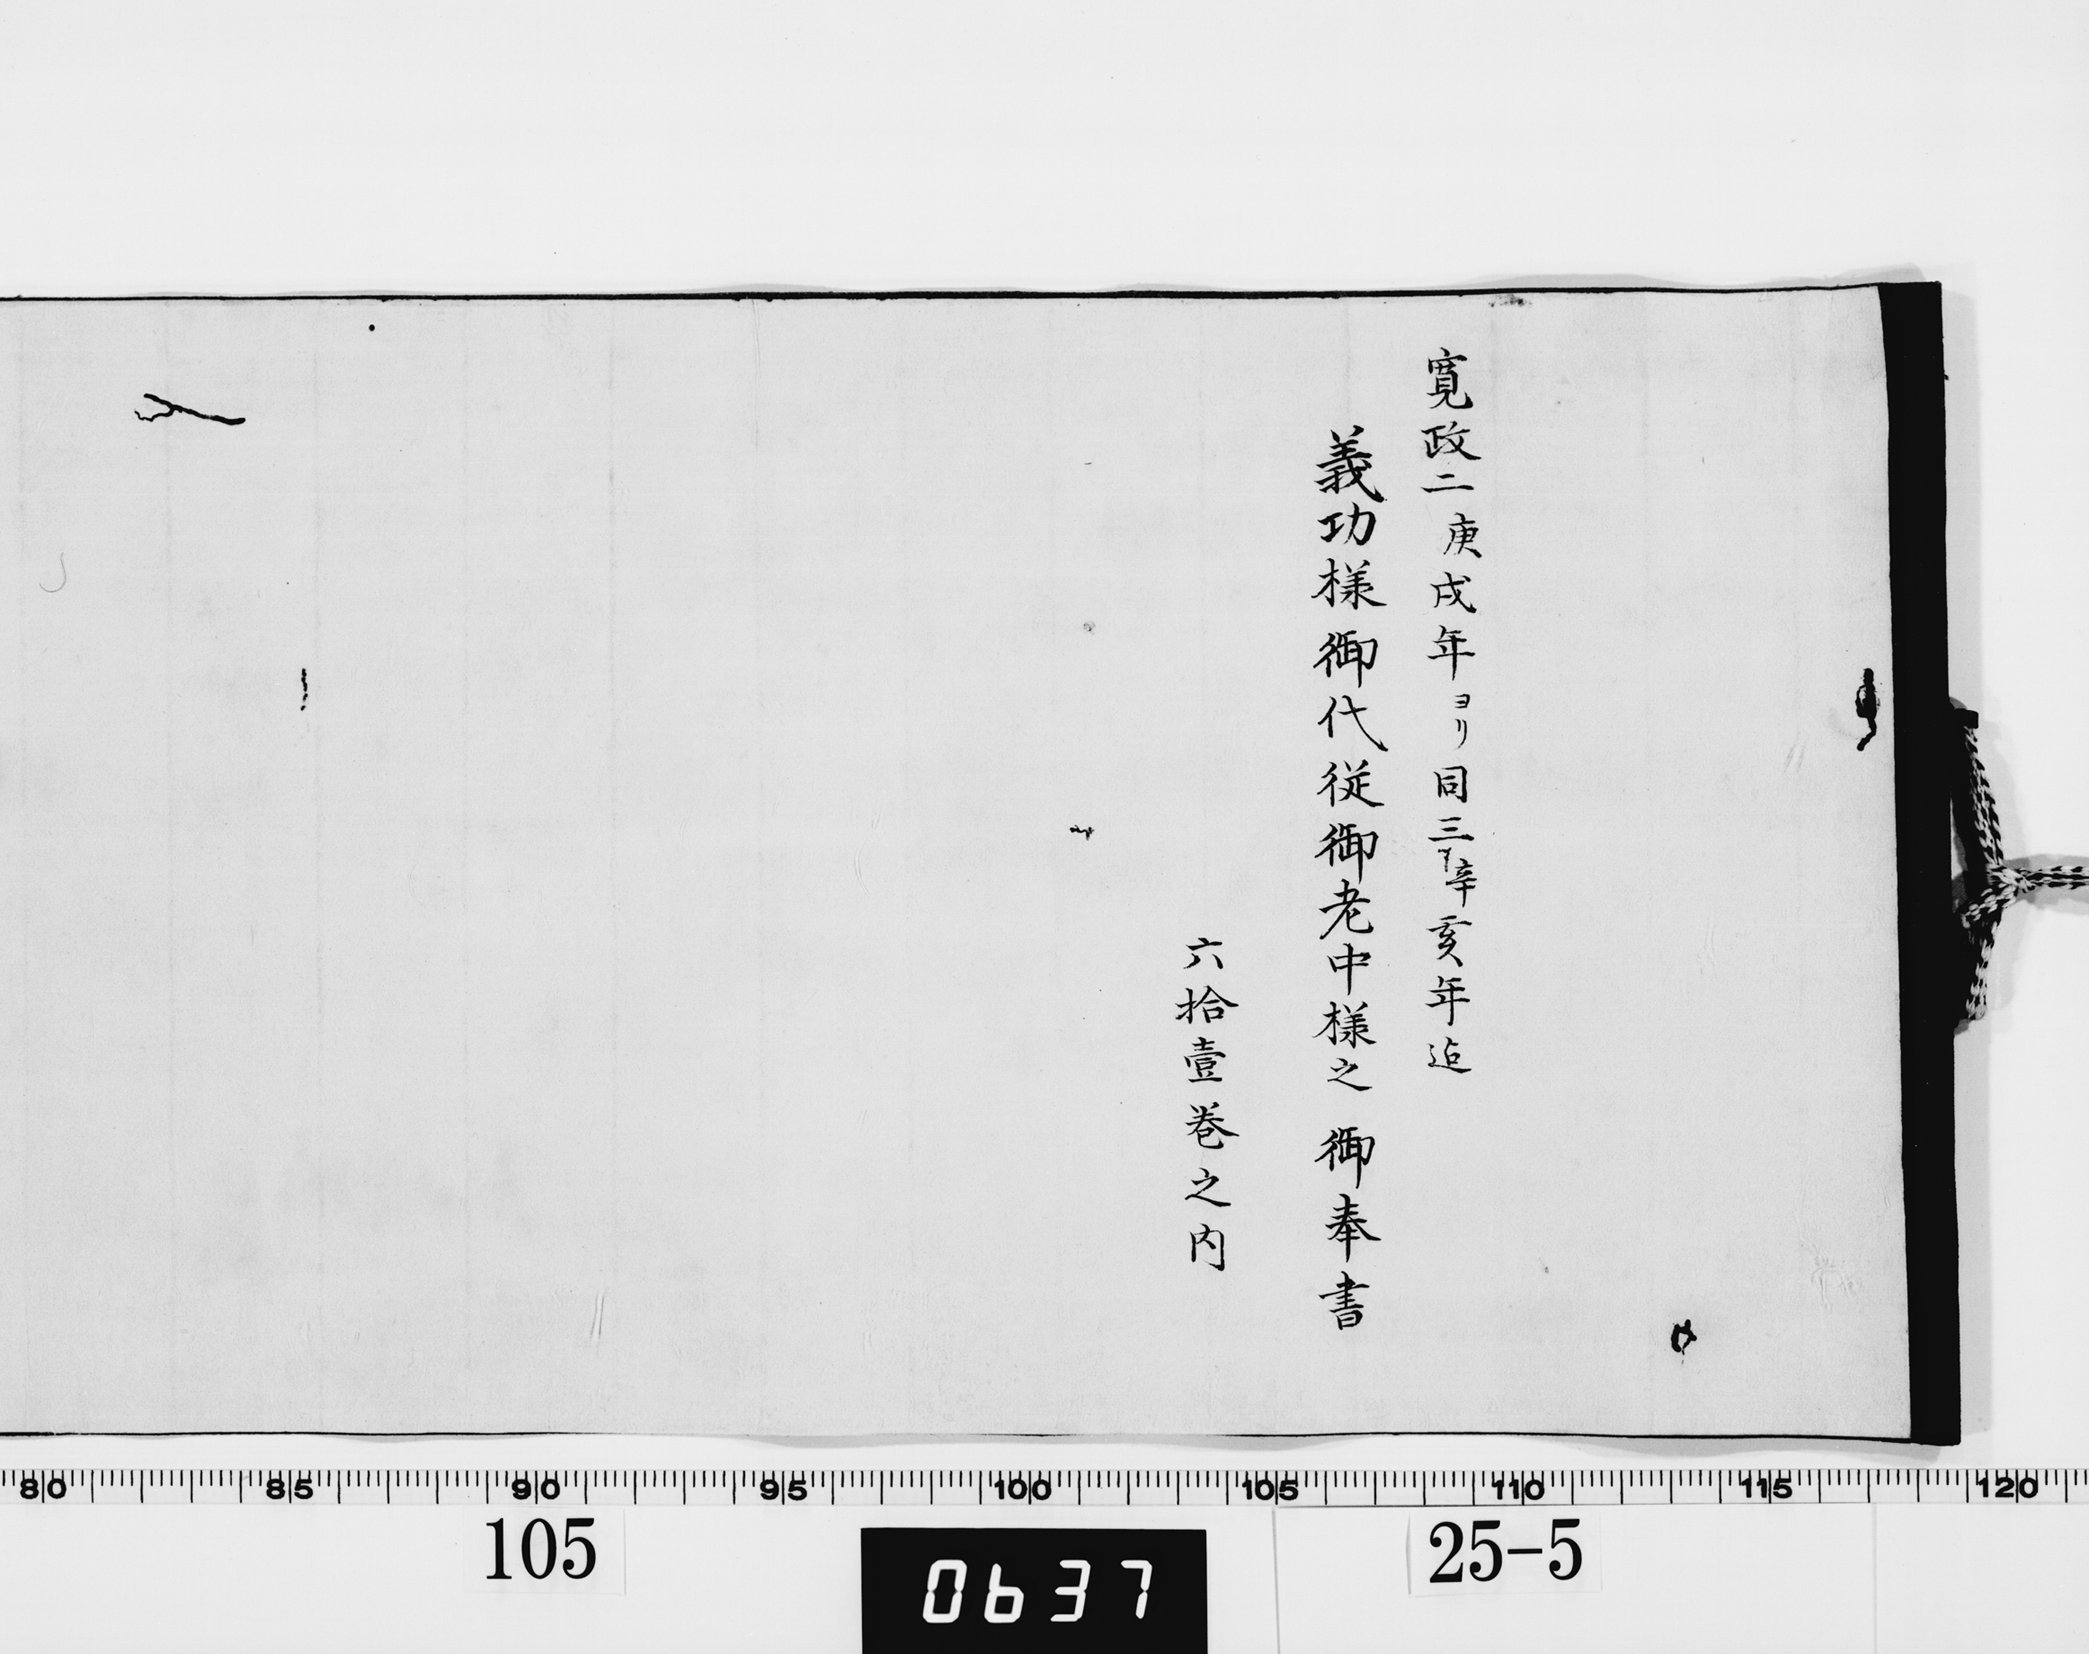 寛政二庚戌年ヨリ同三辛亥年迠
義功様御代従御老中様之御奉書
六拾壹巻之内
80 85 90 95 100 105 110 115 120
105 0637 25-5